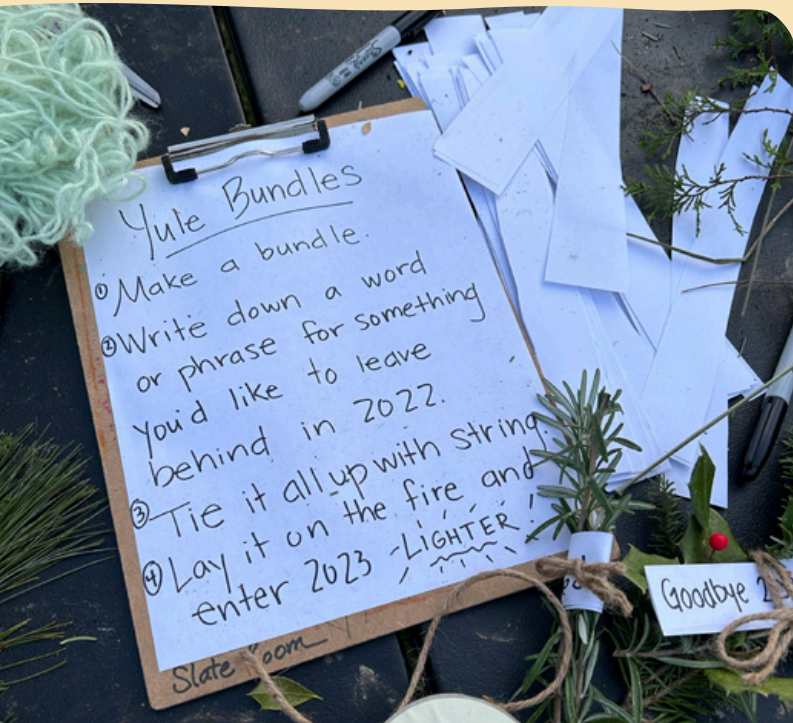 Yule Bundles
① Make a bundle.
② Write down a word
or phrase for something
you'd like to leave
behind in 2022.
③ Tie it all up with string
④ Lay it on the fire and
enter 2023 LIGHTER!
Slate Room
Goodbye 2
Sharpie